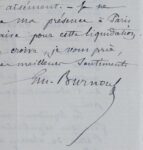 aisément. — Je ne
ma présence à Paris
pour cette liquidation.
croire, je vous prie,
meilleurs sentiments
Em. Burnouf